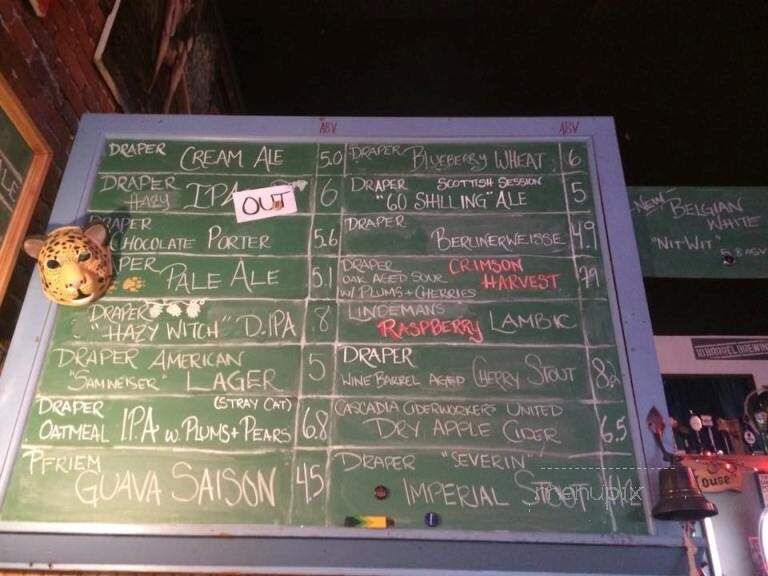 ABV
ABV
DRAPER CREAM ALE 5.0
DRAPER HAZY IPA 6
OUT
DRAPER CHOCOLATE PORTER 5.6
PALE ALE 5.1
DRAPER "HAZY WITCH" D.IPA 8
DRAPER AMERICAN
"SAMWEISER" LAGER 5
DRAPER (STRAY CAT)
OATMEAL I.P.A. W. PLUMS + PEARS 6.8
PFRIEM
GUAVA SAISON 4.5
DRAPER BLUEBERRY WHEAT 6
DRAPER SCOTTISH SESSION
"60 SHILLING" ALE 5
DRAPER
BERLINERWEISSE 4.9
DRAPER CRIMSON
OAK AGED SOUR HARVEST 7.9
W/ PLUMS + CHERRIES
LINDEMANS
RASPBERRY LAMBIC
DRAPER
WINE BARREL AGED CHERRY STOUT 8.2
CASCADIA CIDERWORKERS UNITED
DRY APPLE CIDER 6.5
DRAPER "SEVERIN"
IMPERIAL STOUT
sirmenupix
NEW BELGIAN
WHITE
"NIT WIT" 5.8 ABV
ALE
OUSE